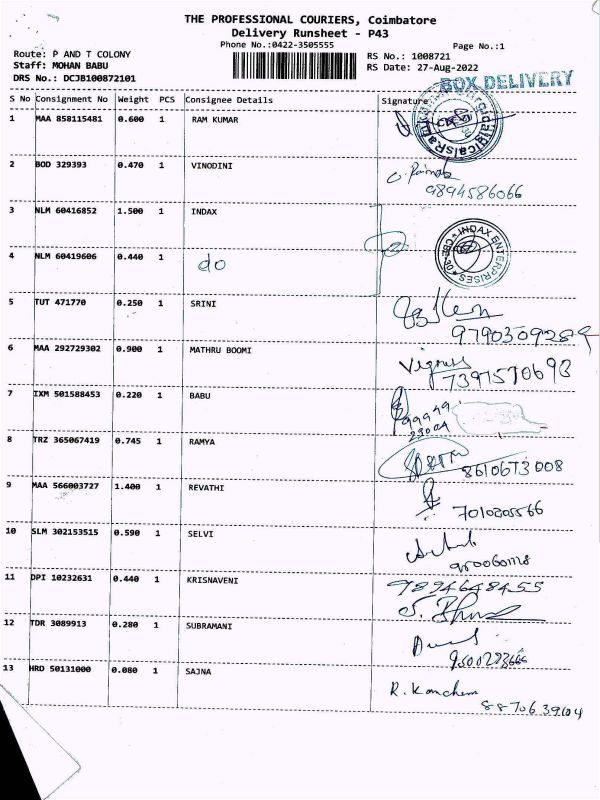 THE PROFESSIONAL COURIERS, Coimbatore
Delivery Runsheet - P43
Phone No.:0422-3505555
Page No.:1
Route: P AND T COLONY
Staff: MOHAN BABU
DRS No.: DCJB100872101
RS No.: 1008721
RS Date: 27-Aug-2022
BOX DELIVERY
S No Consignment No Weight PCS Consignee Details Signature
1 MAA 858115481 0.600 1 RAM KUMAR
2 BOD 329393 0.470 1 VINODINI
9894586066
3 NLM 60416852 1.500 1 INDAX
INDAX ENTERPRISES
4 NLM 60419606 0.440 1 do
5 TUT 471770 0.250 1 SRINI
9790309289
6 MAA 292729302 0.900 1 MATHRU BOOMI
7397570693
7 IXM 501588453 0.220 1 BABU
8 TRZ 365067419 0.745 1 RAMYA
8610673008
9 MAA 566003727 1.400 1 REVATHI
10 SLM 302153515 0.590 1 SELVI
11 DPI 10232631 0.440 1 KRISNAVENI
9894648455
12 TDR 3089913 0.280 1 SUBRAMANI
13 HRD 50131000 0.080 1 SAJNA